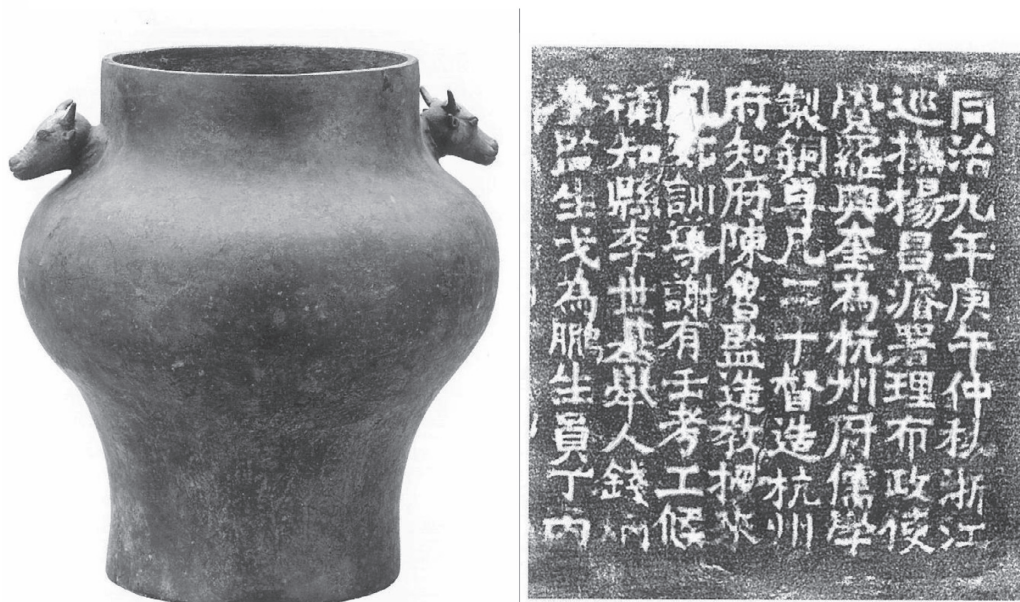 同治九年庚午仲秋浙江
巡撫楊昌濬署理布政使
覺羅興奎為杭州府儒學
製銅尊凡十督造杭州
府知府陳魯監造教授來
訓導謝有壬考工候
補知縣李世基舉人錢炳
監生戈為鵬生員丁丙